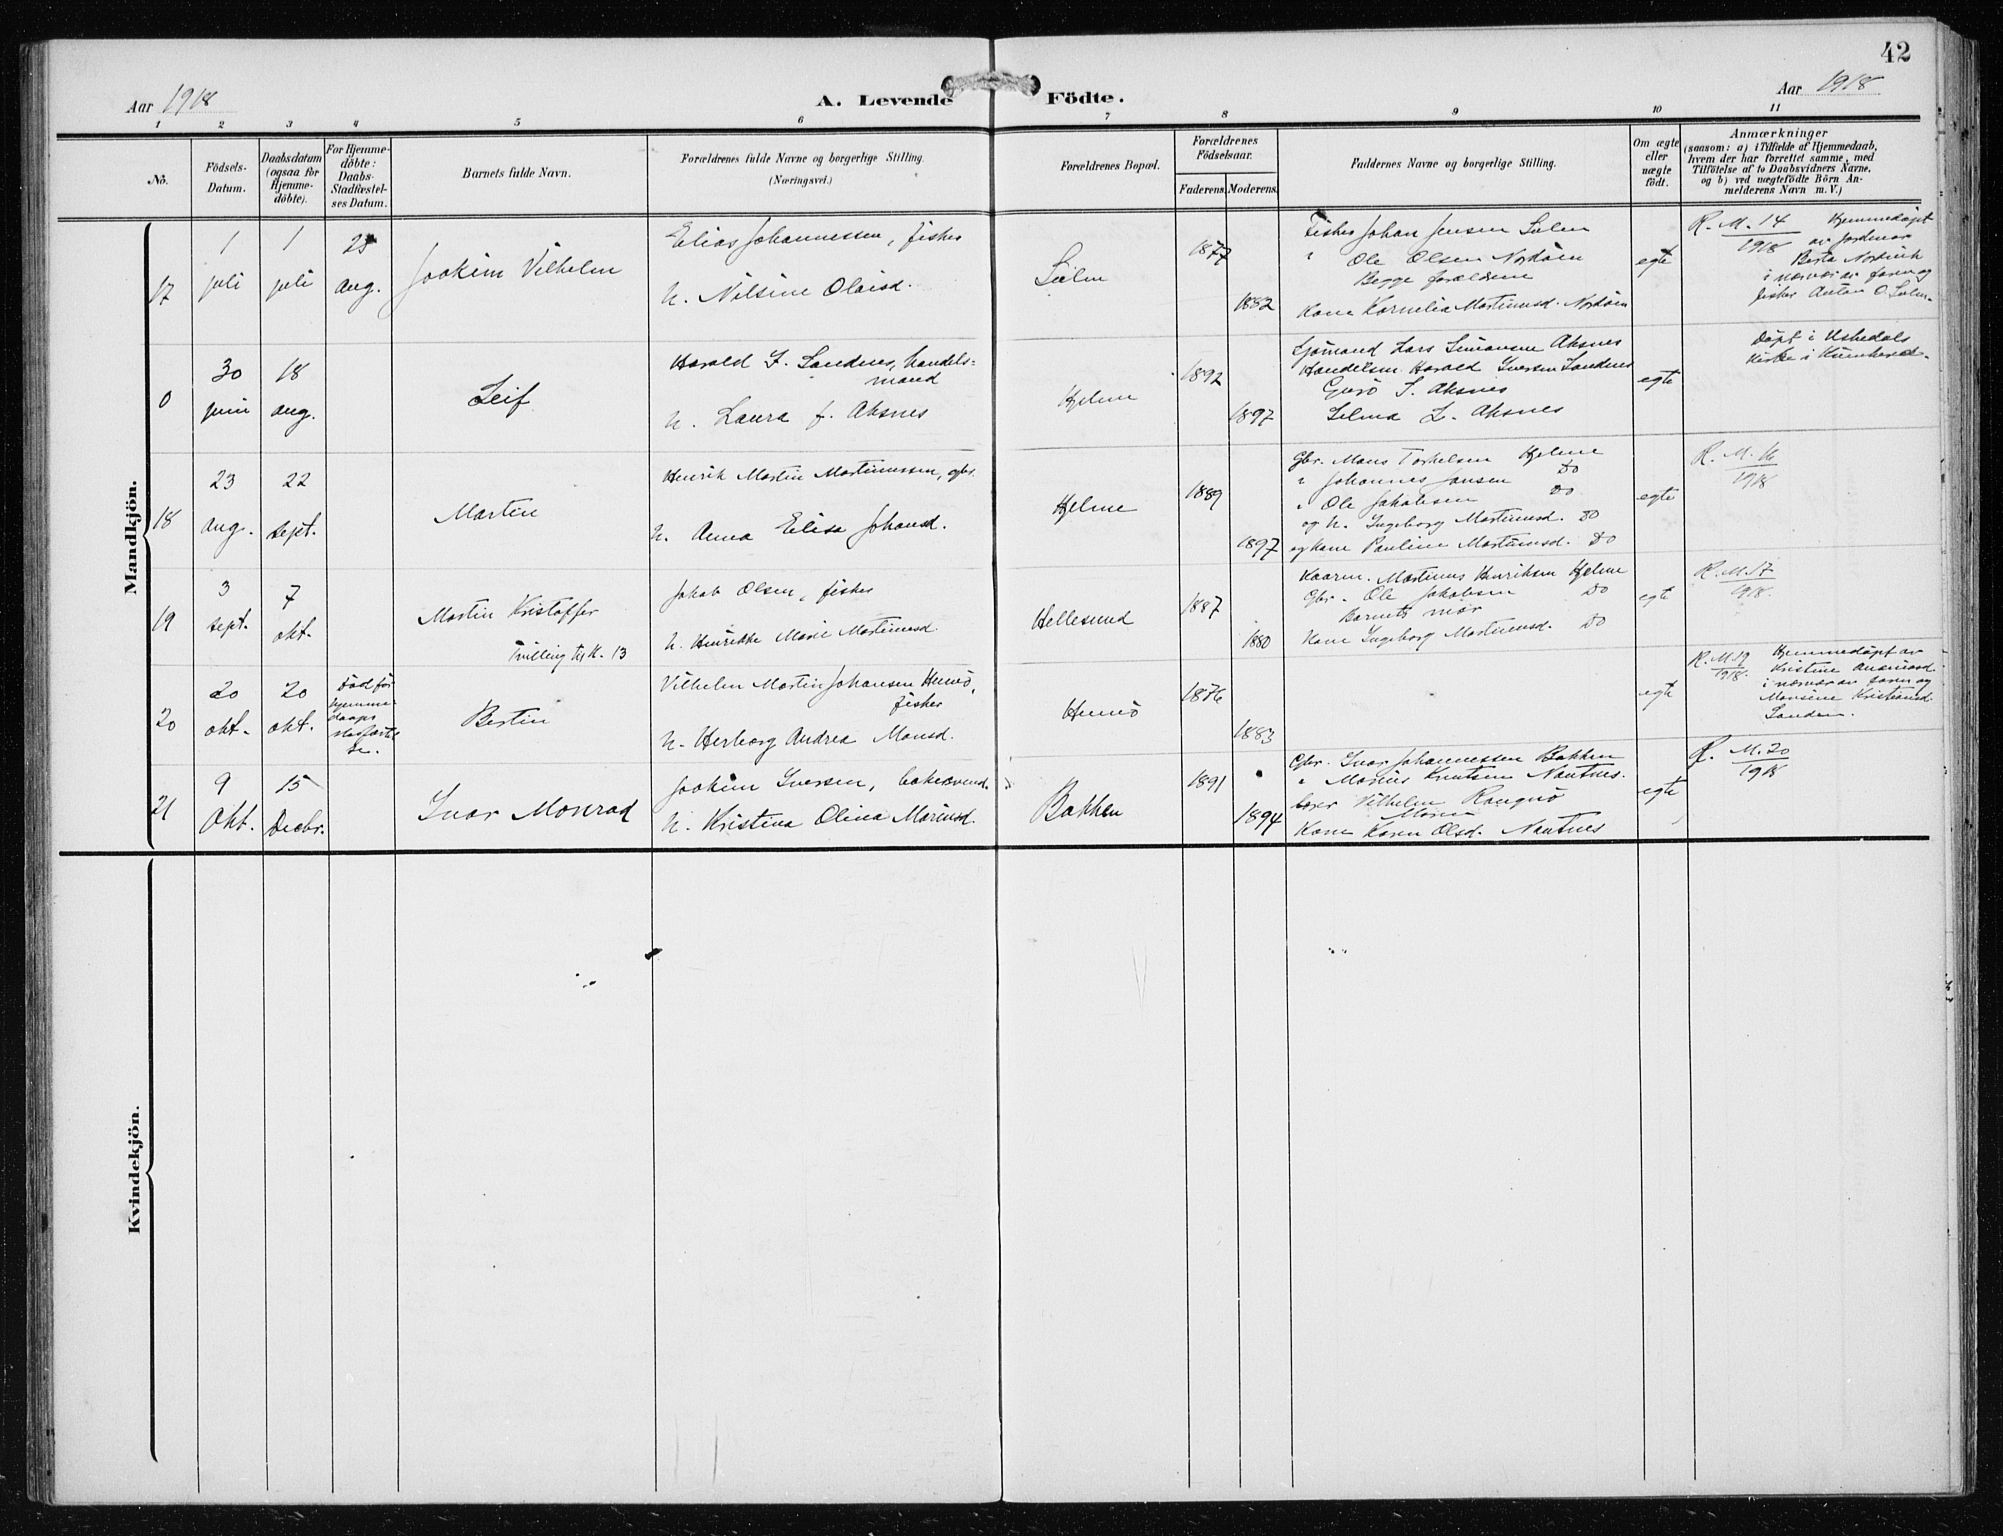 42
Aar 1918
A. Levende Födte.
Aar 1918
1 2 3 4 5 6 7 8 9 10 11
No.
Födsels-Datum.
Daabsdatum (ogsaa for Hjemme-döbte).
For Hjemme-döbte: Daabs-Stadfæstel-ses Datum.
Barnets fulde Navn.
Forældrenes fulde Navne og borgerlige Stilling.
(Næringsvei.)
Forældrenes Bopæl.
Forældrenes Födselsaar.
Faderens. Moderens.
Faddernes Navne og borgerlige Stilling.
Om ægte eller uægte födt.
Anmærkninger
(saasom: a) i Tilfælde af Hjemmedaab, hvem der har forrettet samme, med Tilföielse af to Daabsvidners Navne, og b) ved uægtefödte Börn An-melderens Navn m. V.)
Mandkjön.
17
1 juli
1 juli
25 aug.
Joakim Vilhelm
Elias Johannessen, fisker
h. Nilsine Olaisd.
Sælen
1877
1882
Fisker Johan Jensen Sælen
" Ole Olsen Nordöen
Begge forældrene
Kone Kornelia Martinusd. Nordöen
egte
R. M. 14
1918
Hjemmedøpt
av jordmor
Berta Nordvik
i nærvær av faren og
fisker Anton O. Sælen.
0
30 juni
18 aug.
Leif
Harald I. Sandnes, handels-
mand
h. Laura f. Aksnes
Hjelme
1892
1897
Sjömand Lars Simonsen Aksnes
Handelsm. Harald Iversen Sandnes
Guro S. Aksnes
Selma L. Aksnes
egte
Døpt i Uskedals
kirke i Kvinherad.
18
23 aug.
22 sept.
Martin
Henrik Martin Martinussen, gbr.
h. Anna Elisa Johansd.
Hjelme
1889
1897
Gbr. Mons Torkelsen Hjelme
" Johannes Jansen Do
" Ole Jakobsen Do
og h. Ingeborg Martinusd. Do
og kone Pauline Martinusd. Do
egte
R. M. 16
1918
19
3 sept.
7 okt.
Martin Kristoffer
Tvilling til K. 13
Jakob Olsen, fisker
h. Henrikke Marie Martinusd.
Hellesund
1887
1880
Kaarm. Martinus Henriksen Hjelme
Gbr. Ole Jakobsen Do
Barnets mor
Kone Ingeborg Martinusd. Do
egte
R. M. 17
1918.
20
20 okt.
20 okt.
Död för
hjemme-
daaps
stadfæstel
se.
Bertin
Vilhelm Martin Johansen Hernö,
fisker
h. Herborg Andrea Monsd.
Hernö
1876
1883
egte
R. M. 19
1918.
Hjemmedøpt av
Kristine Andreasd.
i nærvær av faren og
Monsine Kristiansd.
Sanden.
21
9 Okt.
15 Decbr.
Ivar Monrad
Joakim Iversen,
h. Kristina Olina Mariusd.
Bakken
1891
1894
Gbr. Ivar Johannessen Bakken
" Marius Knutsen Nautnes.
Lærer Vilhelm Rongnö
Moren
Kone Karen Olsd. Nautnes
egte
R. M. 20
1918
Kvindekjön.